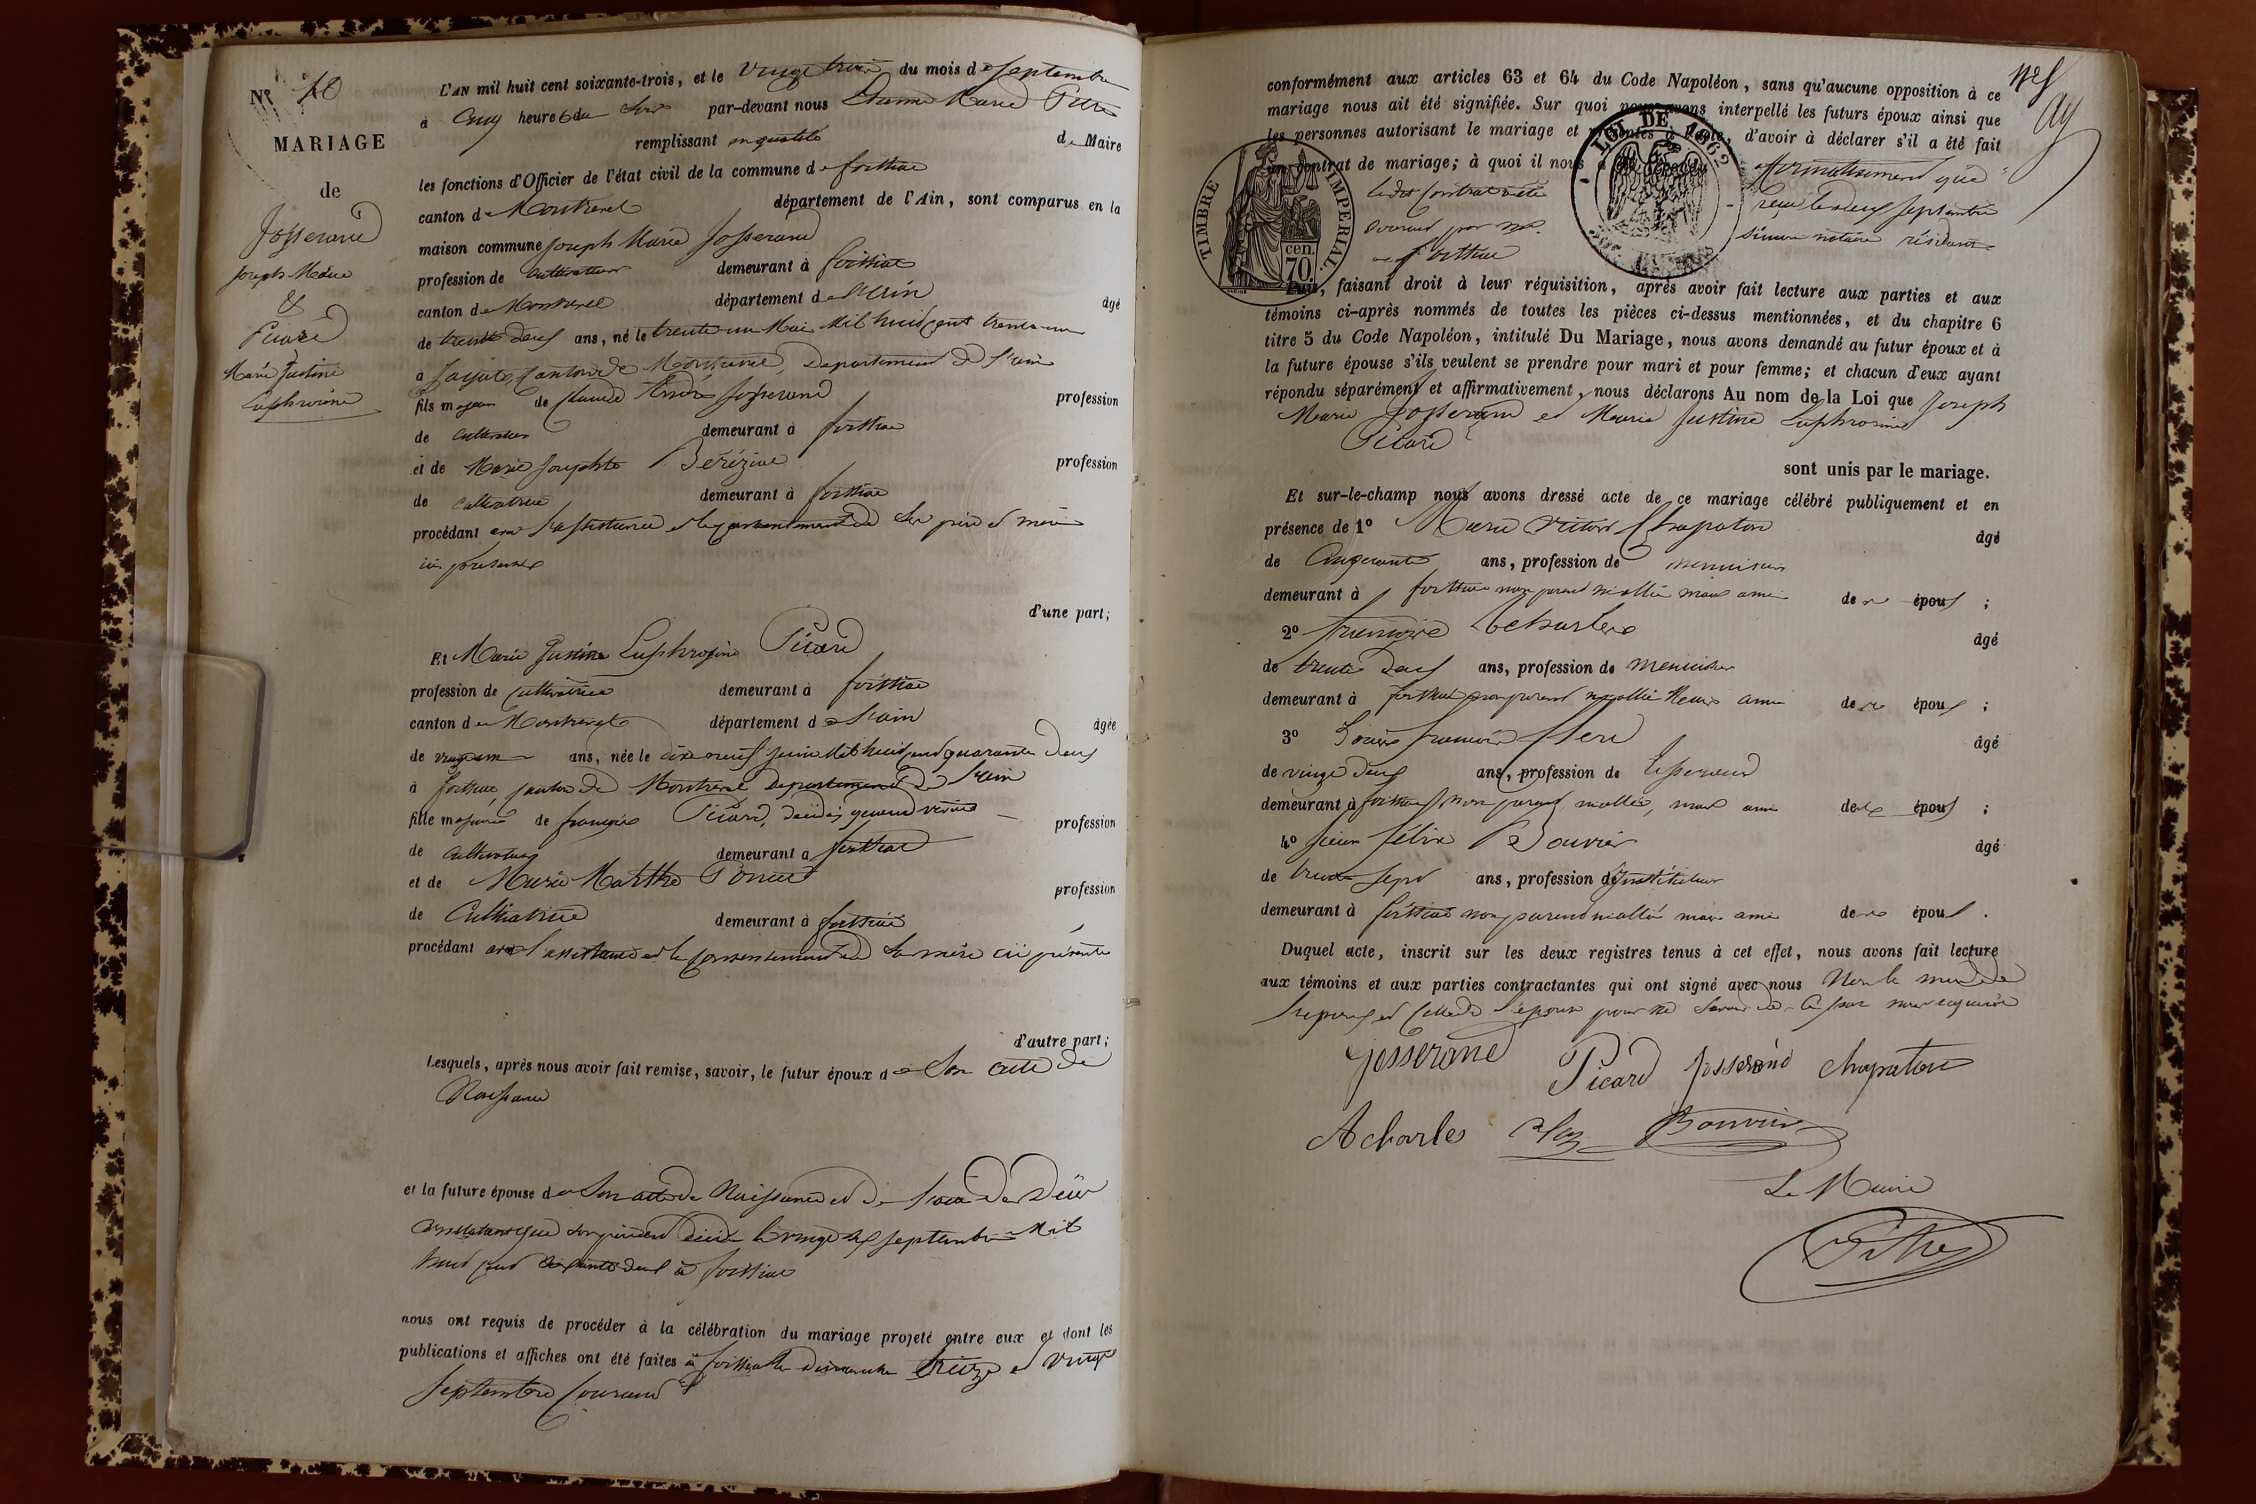 N° 10
MARIAGE
de
Josserand
Joseph Marie
&
Picard
Marie Justine
Euphrosine
L'AN mil huit cent soixante-trois, et le vingt trois du mois de septembre
à cinq heures du soir par-devant nous Etienne Marie
remplissant en qualité de Maire
les fonctions d'Officier de l'état civil de la commune de foissiat
canton de Montrevel département de l'Ain, sont comparus en la
maison commune Joseph Marie Josserand
profession de cultivateur demeurant à foissiat
canton de Montrevel département de l'ain âgé
de trente deux ans, né le trente un Mai Mil huit cent trente un
à Jayat, canton de Montrevel, Departement de l'ain
fils majeur de Claude André Josserand profession
de cultivateur demeurant à foissiat
et de Marie Josephte profession
de cultivatrice demeurant à foissiat
procédant avec l'assistance et le consentement de ses père et mère
ici présents
d'une part;
Et Marie Justine Euphrosine Picard
profession de cultivatrice demeurant à foissiat
canton de Montrevel département de l'ain âgée
de vingt un ans, née le dix neuf juin Mil huit cent quarante deux
à foissiat, canton de Montrevel departement de l'ain
fille majeure de françois Picard, décédé, quand vivait profession
de cultivateur demeurant à foissiat
et de Marie Marthe profession
de Cultivatrice demeurant à foissiat
procédant avec l'assistance et le consentement de sa mère ici présente
d'autre part;
Lesquels, après nous avoir fait remise, savoir, le futur époux de Son acte de
Naissance
et la future épouse de Son acte de Naissance et de l'acte de Décès
constatant que son père est décédé le vingt septembre Mil
huit cent cinquante deux à foissiat
nous ont requis de procéder à la célébration du mariage projeté entre eux et dont les
publications et affiches ont été faites à foissiat les dimanches treize et vingt
septembre courant
conformément aux articles 63 et 64 du Code Napoléon, sans qu'aucune opposition à ce
mariage nous ait été signifiée. Sur quoi nous avons interpellé les futurs époux ainsi que
les personnes autorisant le mariage et présentes à l'acte, d'avoir à déclarer s'il a été fait
un contrat de mariage; à quoi il nous a été répondu affirmativement que
ledit contrat a été reçu le deux septembre
courant par Me. notaire résidant
à foissiat
LOI DE 1862
TIMBRE IMPERIAL
70 cen.
Puis, faisant droit à leur réquisition, après avoir fait lecture aux parties et aux
témoins ci-après nommés de toutes les pièces ci-dessus mentionnées, et du chapitre 6
titre 5 du Code Napoléon, intitulé Du Mariage, nous avons demandé au futur époux et à
la future épouse s'ils veulent se prendre pour mari et pour femme; et chacun d'eux ayant
répondu séparément et affirmativement, nous déclarons Au nom de la Loi que Joseph
Marie Josserand et Marie Justine Euphrosine
Picard
sont unis par le mariage.
Et sur-le-champ nous avons dressé acte de ce mariage célébré publiquement et en
présence de 1° Marie Victor Chapaton âgé
de Cinquante ans, profession de menuisier
demeurant à foissiat non parent ni allié mais ami des époux ;
2° françois Acharles âgé
de trente deux ans, profession de menuisier
demeurant à foissiat non parent ni allié mais ami des époux ;
3° Louis françois âgé
de vingt deux ans, profession de
demeurant à foissiat non parent ni allié, mais ami des époux ;
4° félix Bouvier âgé
de trente sept ans, profession d'instituteur
demeurant à foissiat non parent ni allié mais ami des époux.
Duquel acte, inscrit sur les deux registres tenus à cet effet, nous avons fait lecture
aux témoins et aux parties contractantes qui ont signé avec nous Non la mère de
l'époux et celle de l'épouse pour ne savoir de ce par nous requises
Josserand Picard Josserand Chapaton
Acharles Bouvier
Le Maire